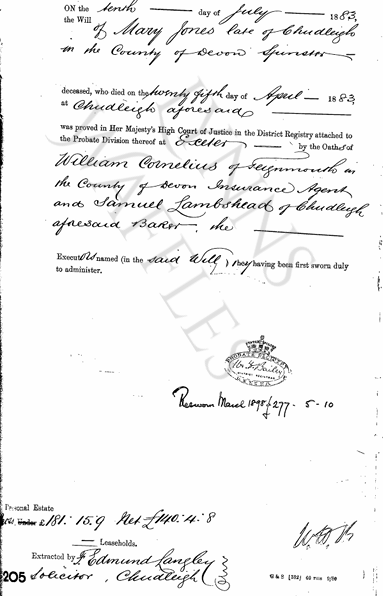 ON the tenth day of July 1883,
the Will
of Mary Jones late of Chudleigh
in the County of Devon Spinster
deceased, who died on the twenty fifth day of April 1883,
at Chudleigh aforesaid
was proved in Her Majesty's High Court of Justice in the District Registry attached to
the Probate Division thereof at Exeter by the Oaths of
William Cornelius of Teignmouth in
the County of Devon Insurance Agent
and Samuel Lambshead of Chudleigh
aforesaid Baker, the
Executors named (in the said Will) they having been first sworn duly
to administer.
PROBATE REGISTRY
DISTRICT REGISTRAR
EXETER
Resworn March 1898 £277-5-10
Personal Estate
Under £181:15:9 Net £140:4:8
Leaseholds.
Extracted by F. Edmund Langley
205 Solicitor, Chudleigh